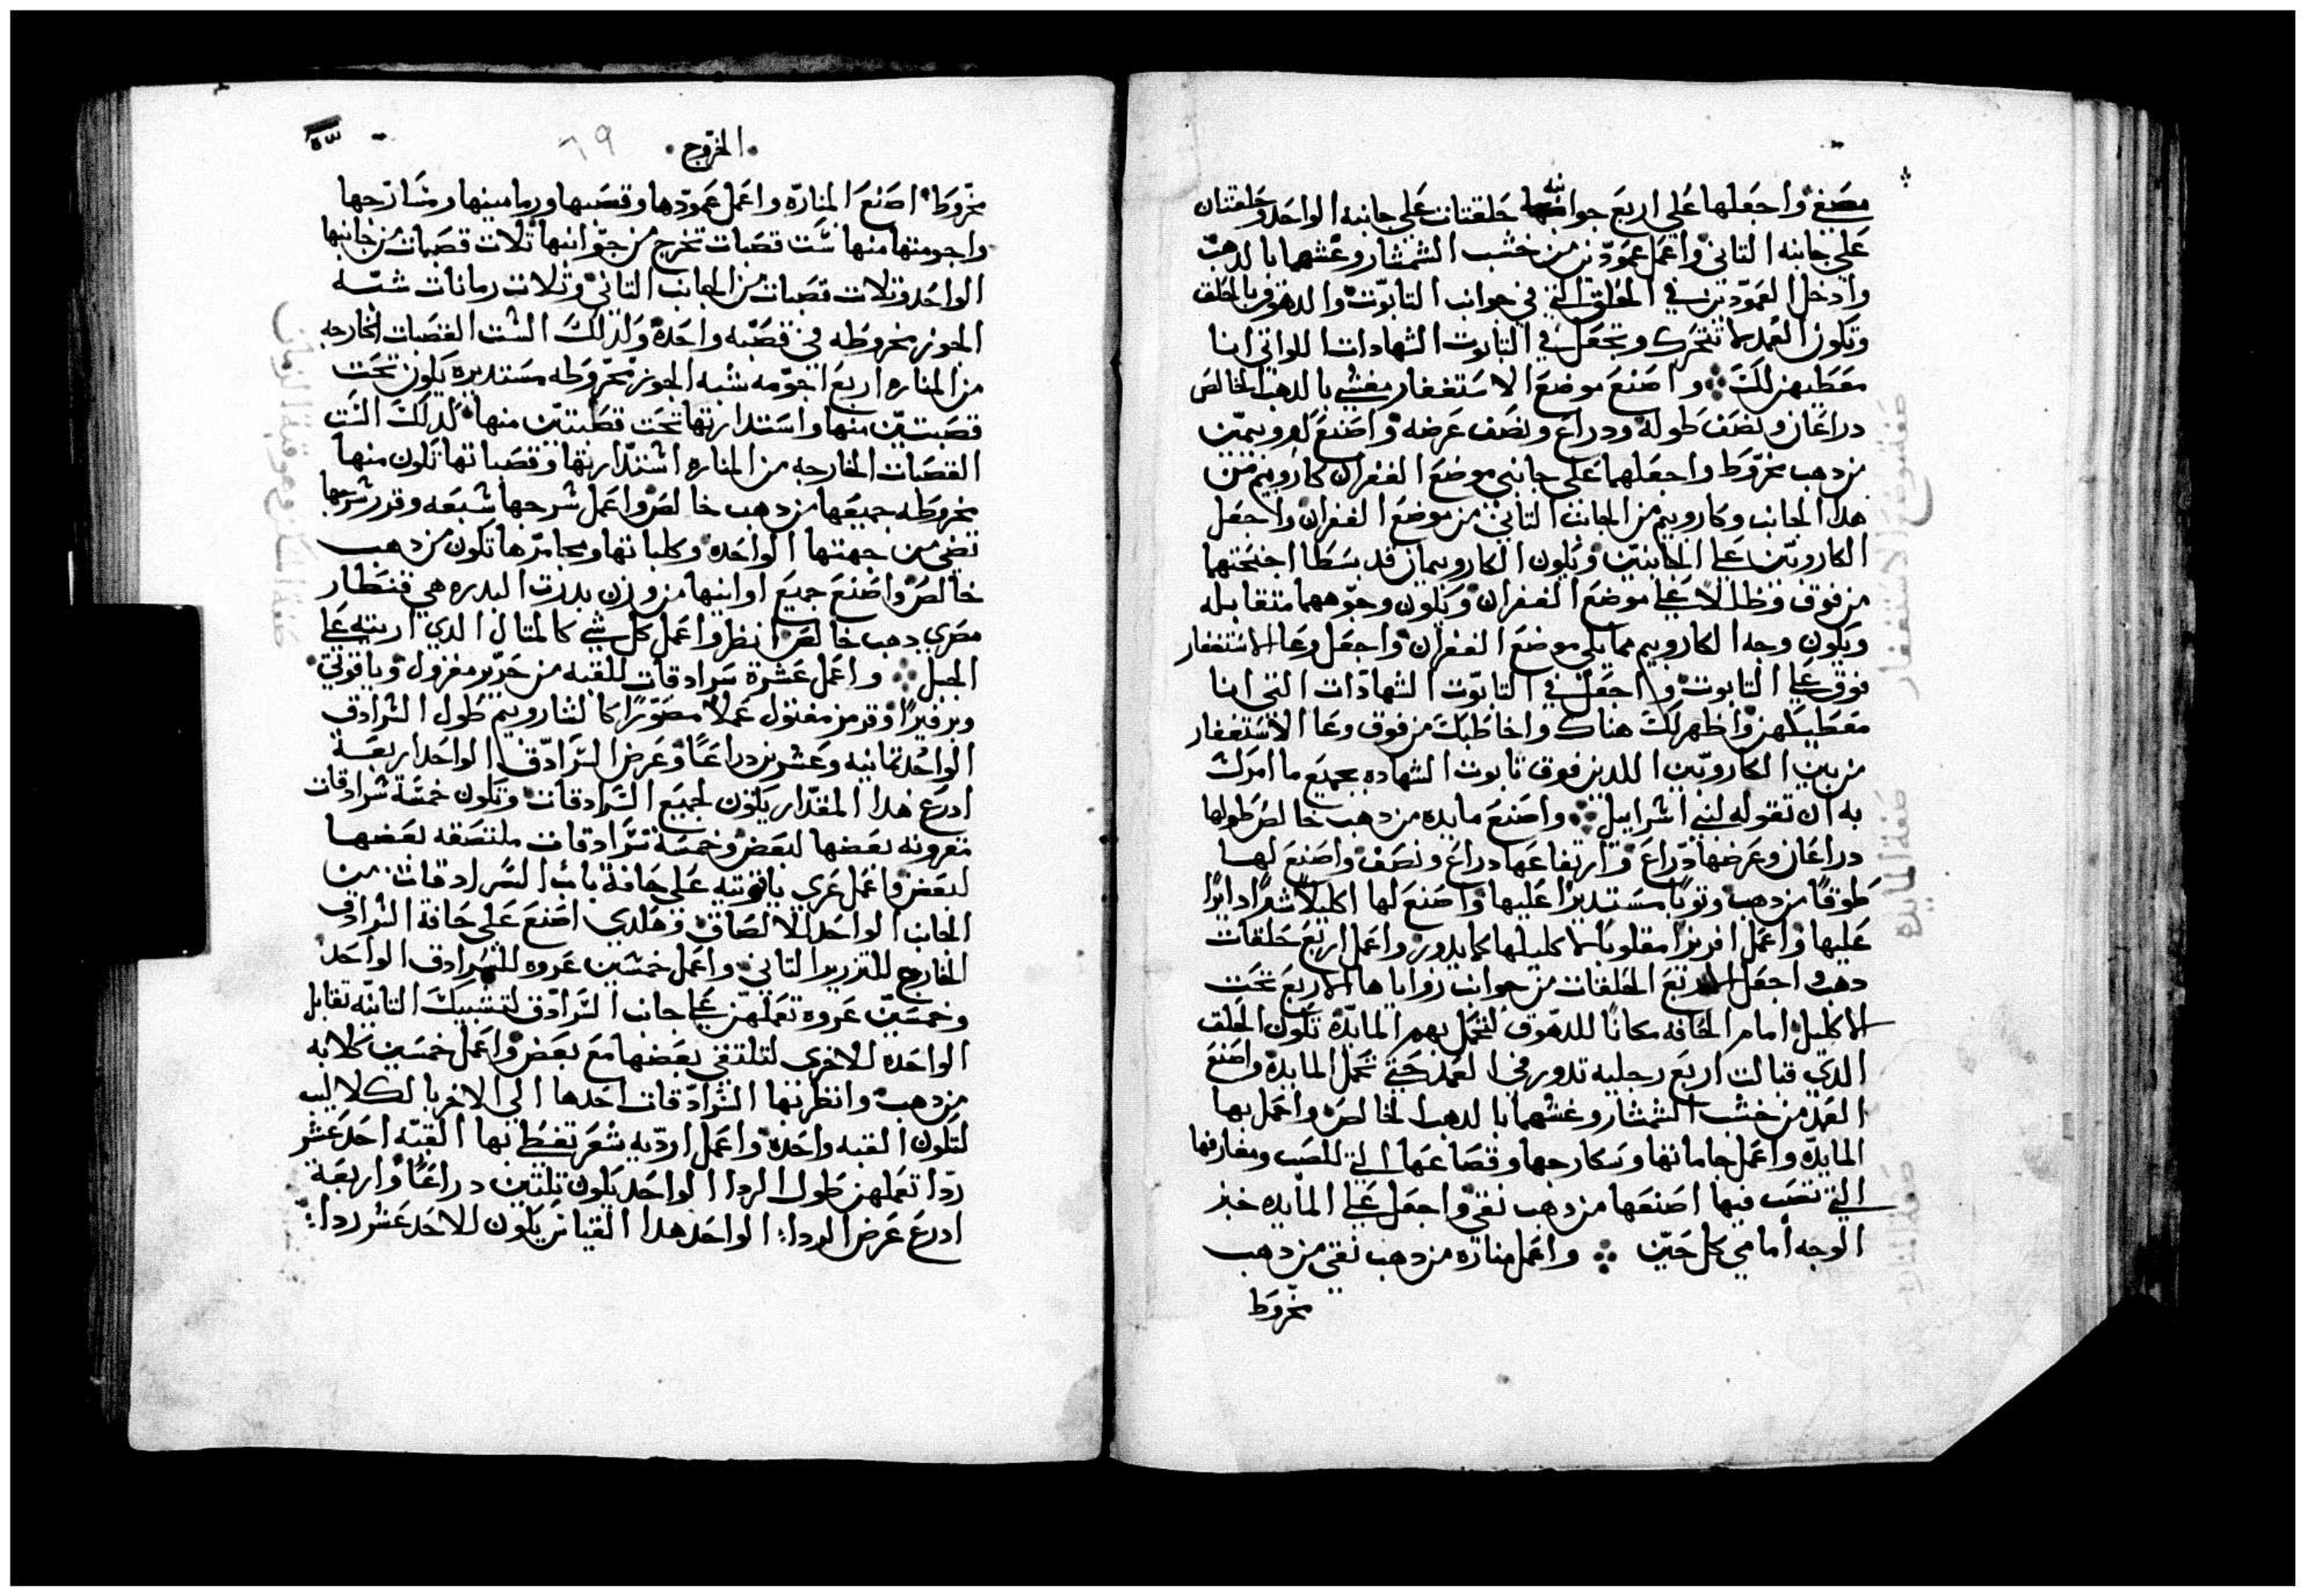 مصبغ واجعلها علي اربع جوانبه حلقتان علي جانبه الواحد وحلقتان
علي جانبه التاني واعمل عمودين من خشب الشمشار وغشهما بالدهب
وادخل العمودين في الحلق التي في جوانب التابوت والدهوق بالحلق
وتكون العمد لا تتحرك وتجعل في التابوت الشهادات اللواتي انا
معطيهن لك واصنع موضع الاستغفار مغشي بالدهب الخالص
دراعان ونصف طوله ودراع ونصف عرضه واصنع كاروبيمين
من دهب مخروط واجعلهما علي جانبي موضع الغفران كاروبيم من
هدا الجانب وكاروبيم من الجانب التاني من موضع الغفران واجعل
الكاروبين علي الجانبين ويكون الكاروبيمان قد بسطا اجنحتهما
من فوق وظللا علي موضع الغفران ويكون وجوههما متقابله
ويكون وجه الكاروبيم مما يلي موضع الغفران واجعل وعا الاستغفار
فوق علي التابوت واجعل في التابوت الشهادات التي انا
معطيكهن واظهر لك هناك واخاطبك من فوق وعا الاستغفار
من بين الكاروبين اللدين فوق تابوت الشهاده بجميع ما امرك
به ان تقوله لبني اسراييل واصنع مايده من دهب خالص طولها
دراعان وعرضها دراع وارتفاعها دراع ونصف واصنع لها
طوقا من دهب ملتويا مستديرا عليها واصنع لها اكليلا شبرا دايرا
عليها واعمل افريزا مقلوبا لاكليلها كما يدور واعمل اربع حلقات
دهب واجعل الاربع الحلقات من جوانب زواياها الاربع تحت
الاكليل امام الحافه مكانا للدهوق لتحمل بهم المايده تكون الحلق
الدي قبالت اربع رجليه تدور في العمد حتي تحمل المايده واصنع
العمد من خشب الشمشار وغشهما بالدهب الخالص واحمل بها
المايده واعمل جاماتها وسكارجها وقصاعها التي للصب ومغارفها
التي تصب فيها اصنعها من دهب نقي واجعل علي المايده خبز
الوجه امامي كل حين واعمل مناره من دهب نقي من دهب
مخروط
صفة موضع الاستغفار
صفة المايده
صفة المناره
الخروج
٦٩
مخروط اصنع المناره واعمل عمودها وقصبها ورمامينها ومسارجها
واجومتها منها ست قصبات تخرج من جوانبها تلات قصبات من جانبها
الواحد وتلات قصبات من الجانب التاني وتلات رمانات شبه
الجوز مخروطه في قصبه واحده وكدلك الست القصبات الخارجه
من المناره اربع اجومه شبه الجوز مخروطه مستديره يكون تحت
قصبتين منها واستدارتها تحت قصبتين منها كدلك الست
القصبات الخارجه من المناره استدارتها وقصباتها تكون منها
مخروطه جميعها من دهب خالص واعمل سرجها سبعه وقرر سرجها
تضي من جهتها الواحده وكلباتها ومجامرها تكون من دهب
خالص واصنع جميع اوانيها من وزن بدرت البدره هي قنطار
مصري دهب خالص انظر واعمل كل شي كالمتال الدي اريته علي
الجبل واعمل عشرة سرادقات للقبه من حرير مغزول وياقوتي
وبرفيرا وقرمز مفتول عملا مصورا كالشاروبيم طول السرادق
الواحد تمانيه وعشرين دراعا وعرض السرادق الواحد اربعة
ادرع هدا المقدار يكون لجميع السرادقات وتكون خمسة سرادقات
مقرونه بعضها لبعض وخمسة سرادقات ملتصقه بعضها
لبعض واعمل عري ياقوتيه علي حافة باب السرادقات من
الجانب الواحد للالصاق وهكدي اصنع علي حافة السرادق
الخارج للتزرير التاني واعمل خمسين عروه للسرادق الواحد
وخمسين عروه تعملهن علي جانب السرادق لتشبيك التانيه تقابل
الواحده للاخري لتلتفي بعضها مع بعض واعمل خمسين كلابه
من دهب وانظر بها السرادقات احدها الي الاخر بالكلاليب
لتكون القبه واحده واعمل ارديه شعر تغطي بها القبه احد عشر
ردا تعملهن طول الردا الواحد يكون تلتين دراعا واربعة
ادرع عرض الردا الواحد هدا القياس يكون للاحد عشر ردا